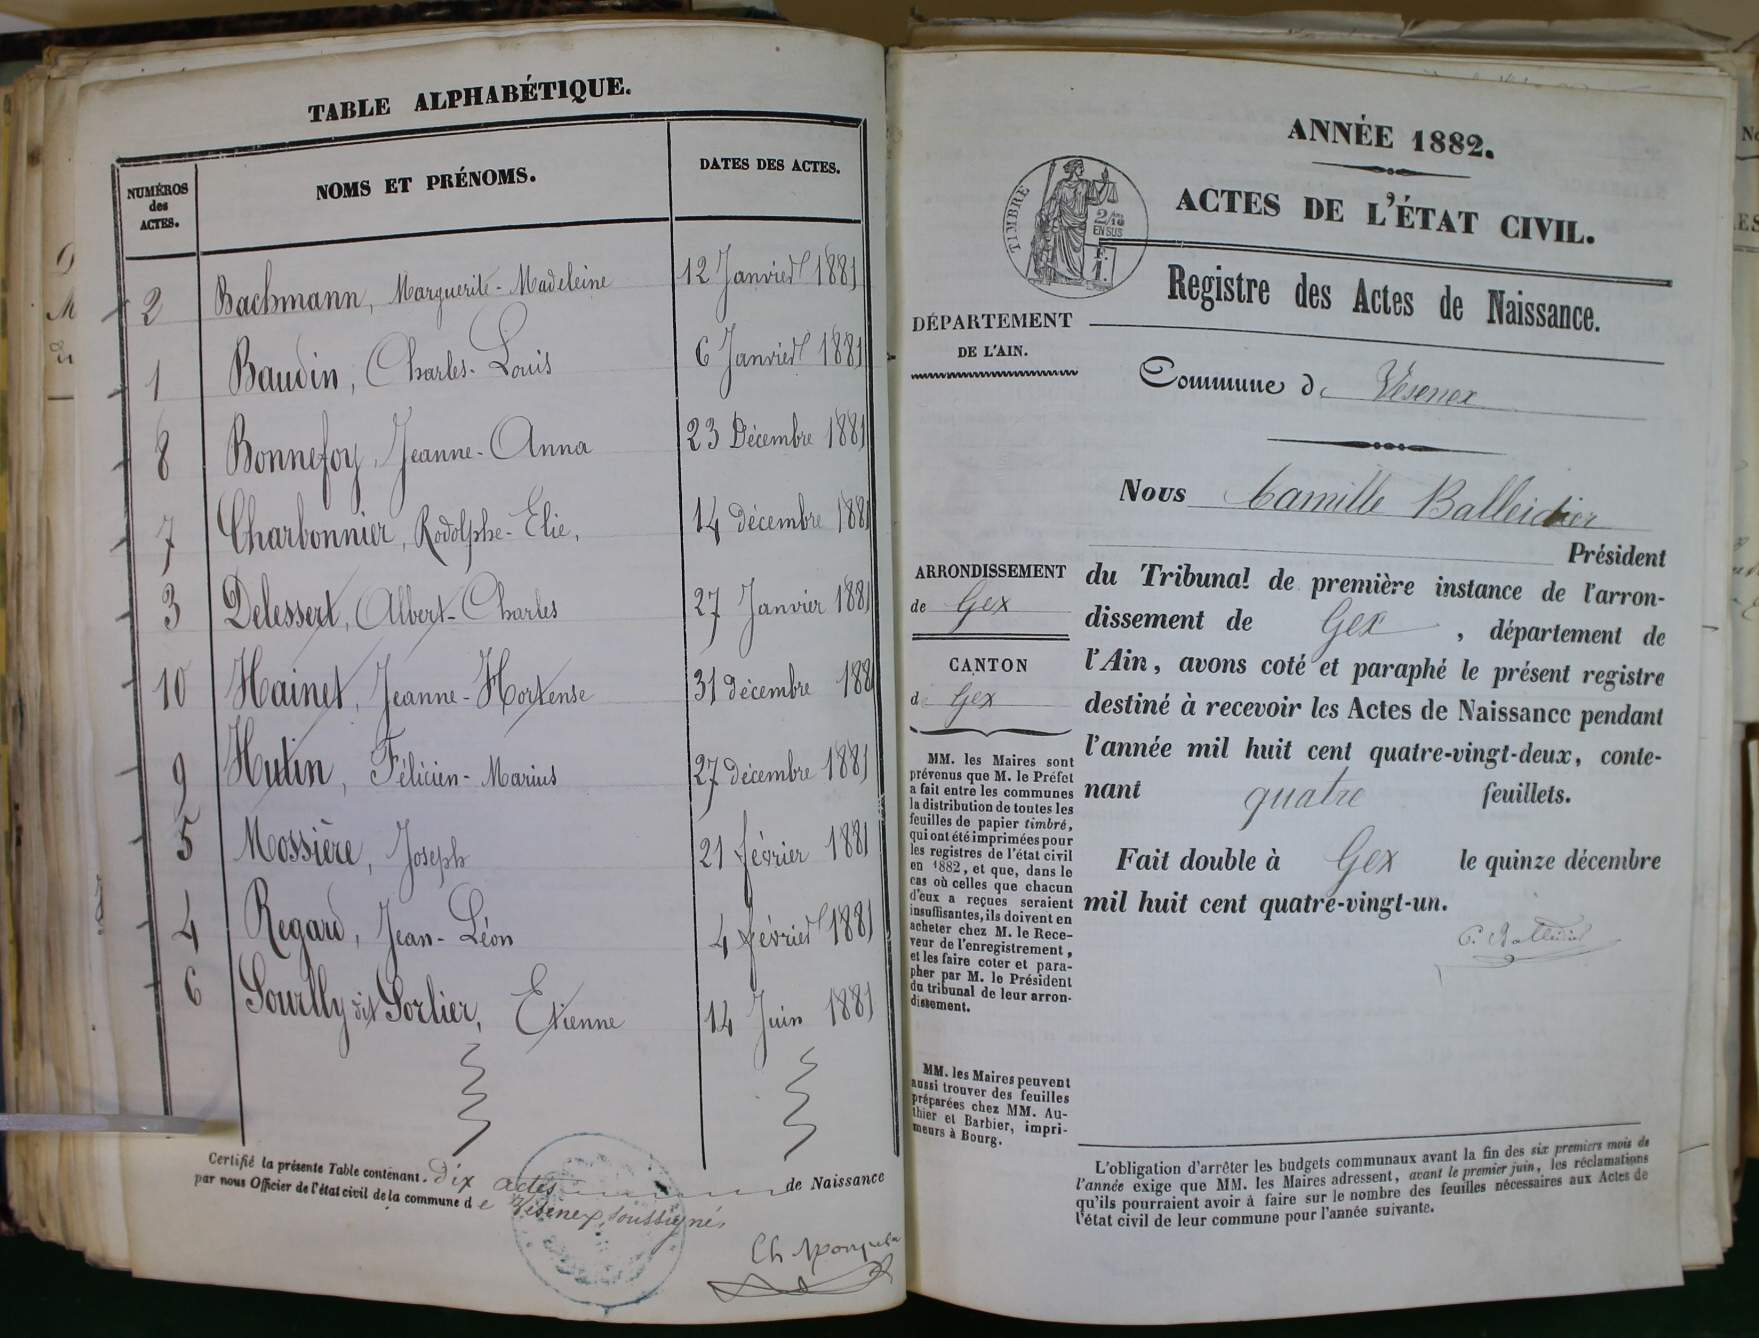 TABLE ALPHABÉTIQUE.
NUMÉROS
des
ACTES.
NOMS ET PRÉNOMS.
DATES DES ACTES.
2 Bachmann, Marguerite-Madeleine 12 Janvier 1881
1 Baudin, Charles-Louis 6 Janvier 1881
8 Bonnefoy, Jeanne-Anna 23 Décembre 1881
7 Charbonnier, Rodolphe-Elie, 14 décembre 1881
3 Delessert, Albert-Charles 27 Janvier 1881
10 Hainet, Jeanne-Hortense 31 décembre 188
9 Hutin, Félicien-Marius 27 décembre 1881
5 Mossière, Joseph 21 février 1881
4 Regard, Jean-Léon 4 février 1881
6 Sourlly dit Sorlier, Etienne 14 Juin 1881
Certifié la présente Table contenant dix actes de Naissance
par nous Officier de l'état civil de la commune de Vésenex, soussigné,
ANNÉE 1882.
ACTES DE L'ÉTAT CIVIL.
TIMBRE
2/10
EN SUS
F.
1.
Registre des Actes de Naissance.
DÉPARTEMENT
DE L'AIN.
Commune de Vésenex
Nous Camille Balleidier
Président
du Tribunal de première instance de l'arron-
dissement de Gex, département de
l'Ain, avons coté et paraphé le présent registre
destiné à recevoir les Actes de Naissance pendant
l'année mil huit cent quatre-vingt-deux, conte-
nant quatre feuillets.
Fait double à Gex le quinze décembre
mil huit cent quatre-vingt-un.
C. Balleidier
ARRONDISSEMENT
de Gex
CANTON
de Gex
MM. les Maires sont
prévenus que M. le Préfet
a fait entre les communes
la distribution de toutes les
feuilles de papier timbré,
qui ont été imprimées pour
les registres de l'état civil
en 1882, et que, dans le
cas où celles que chacun
d'eux a reçues seraient
insuffisantes, ils doivent en
acheter chez M. le Rece-
veur de l'enregistrement,
et les faire coter et para-
pher par M. le Président
du tribunal de leur arron-
dissement.
MM. les Maires peuvent
aussi trouver des feuilles
préparées chez MM. Au-
thier et Barbier, impri-
meurs à Bourg.
L'obligation d'arrêter les budgets communaux avant la fin des six premiers mois de
l'année exige que MM. les Maires adressent, avant le premier juin, les réclamations
qu'ils pourraient avoir à faire sur le nombre des feuilles nécessaires aux Actes de
l'état civil de leur commune pour l'année suivante.